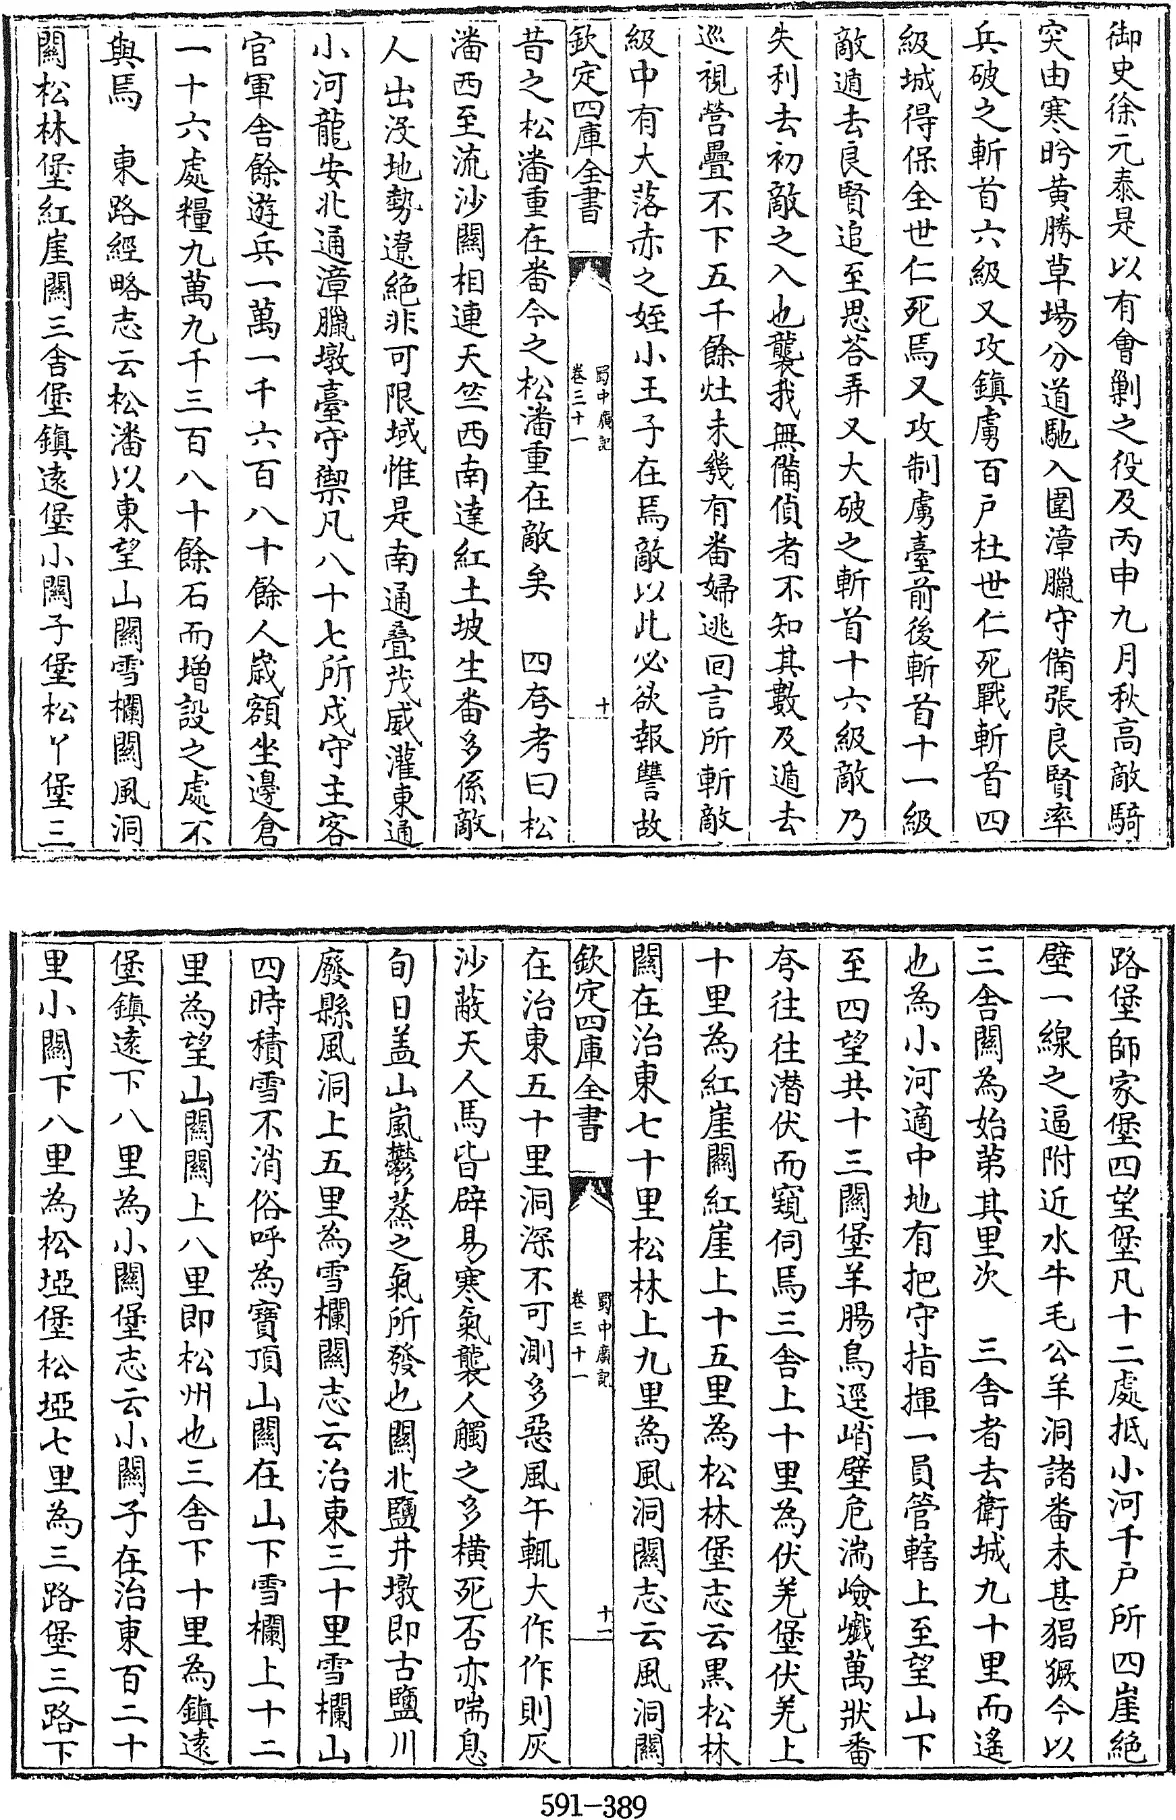 御史徐元泰是以有會剿之役及丙申九月秋高敵騎
突由寒盻黄勝草場分道馳入圍漳臘守備張良賢率
兵破之斬首六級又攻鎮虜百户杜世仁死戰斬首四
級城得保全世仁死焉又攻制虜臺前後斬首十一級
敵遁去良賢追至思荅弄又大破之斬首十六級敵乃
失利去初敵之入也襲我無備偵者不知其數及遁去
巡視營疊不下五千餘灶未幾有畨婦逃回言所斬敵
級中有大落赤之姪小王子在焉敵以此必欲報讐故
欽定四庫全書
蜀中廣記
卷三十一
十
昔之松潘重在畨今之松潘重在敵矣 四夸考曰松
潘西至流沙關相連天竺西南達紅土坡生畨多係敵
人出没地勢遼絶非可限域惟是南通疊茂威灌東通
小河龍安北通漳臘墩臺守禦凡八十七所戍守主客
官軍舎餘遊兵一萬一千六百八十餘人歲額坐邊倉
一十六處糧九萬九千三百八十餘石而增設之處不
與焉 東路經略志云松潘以東望山關雪欄關風洞
關松林堡紅崖關三舎堡鎮遠堡小關子堡松丫堡三
路堡師家堡四望堡凡十二處抵小河千户所四崖絶
壁一線之逼附近水牛毛公羊洞諸畨未甚猖獗今以
三舎關為始第其里次 三舎者去衛城九十里而遙
也為小河適中地有把守指揮一員管轄上至望山下
至四望共十三關堡羊腸鳥逕峭壁危湍嶮巇萬狀畨
夸往往潜伏而窺伺焉三舎上十里為伏羌堡伏羌上
十里為紅崖關紅崖上十五里為松林堡志云黒松林
關在治東七十里松林上九里為風洞關志云風洞關
欽定四庫全書
蜀中廣記
卷三十一
十一
在治東五十里洞深不可測多惡風午輒大作作則灰
沙蔽天人馬皆辟易寒氣襲人觸之多横死否亦喘息
旬日盖山嵐鬱蒸之氣所發也關北鹽井墩即古鹽川
廢縣風洞上五里為雪欄關志云治東三十里雪欄山
四時積雪不消俗呼為寶頂山關在山下雪欄上十二
里為望山關關上八里即松州也三舎下十里為鎮遠
堡鎮遠下八里為小關堡志云小關子在治東百二十
里小關下八里為松埡堡松埡七里為三路堡三路下
591-389